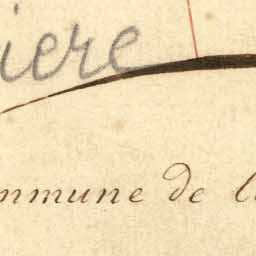 iere
ommune de l